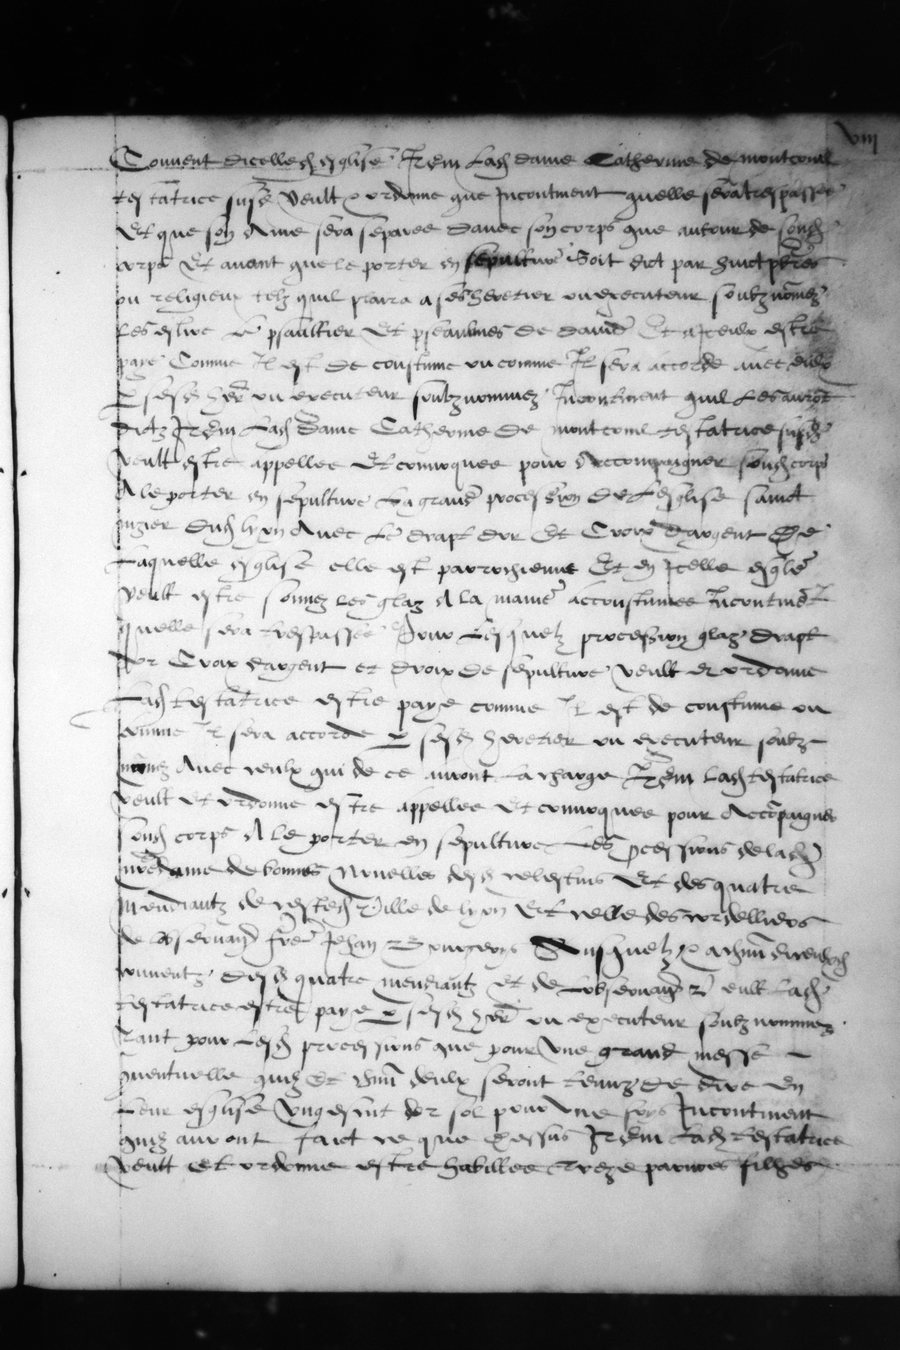 viii
Couvent dicelled esglise Item Lad dame Catherine de montconil
testatrice susd veult & ordonne que Incontinent quelle sera trespassee
Et que son Ame sera separee davec son corps que autour de sond
corps Et avant que le porter en sepulture Soit dict par huict pbres
ou religieux telz quil plaira a ses heretier ou executeur soubznomez
Les eslire Le psaultier Et pseaulmes de david Et a Iceulx estre
paye Comme Il est De coustume ou comme Il sera accorde avec eulx
p sesd her ou executeur soubznommez Incontinent quil Les auront
dictz Item Lad Dame Catherine De montconil testatrice susd
veult estre appellee Et convoquee pour Accompaigner sond corps
A le porter en sepulture La grand procession De Lesglise sainct
nizier Dud lyon Avec Le drapt dor Et Croix Dargent De
Laquelle esglise elle est parrochienne Et en Icelle esglise
veult estre sonnez les glaz A la maniere accoustumee Incontinent
quelle sera trespassee Pour Lesquelz procession glaz drapt
dor Croix dargent et droix de sepulture veult & ordonne
Lad testatrice estre paye comme Il est de coustume ou
comme Il sera accorde p sesd heretier ou executeur soubz
nomez Avec ceulx qui de ce auront La charge Item Lad testatrice
veult Et ordonne estre appellee Et convoquee pour Accompaigner
sond corps A le porter en sepulture Les pcessions de lad
nredame de bonnes Nouelles desd celestins Et des quatre
mendiantz de cested Ville de lyon Et celle des cordelliers
de Lobservance frere Jehan Bourgeoys Ausquelz & a chun diceulxd
couventz Desd quatre mendiantz et de Lobservance veult Lad
testatrice estre paye p sesd her ou executeur soubznommez
tant pour Lesd processions que pour Une grand messe
conventuelle quilz Et chun deulx seront tenuz De dire En
Leur esglise Ung escut dor sol pour Une foys Incontinent
quilz auront faict ce que Dessus Item Lad testatrice
Veult Et ordonne estre habillee Treze pauvres filhes